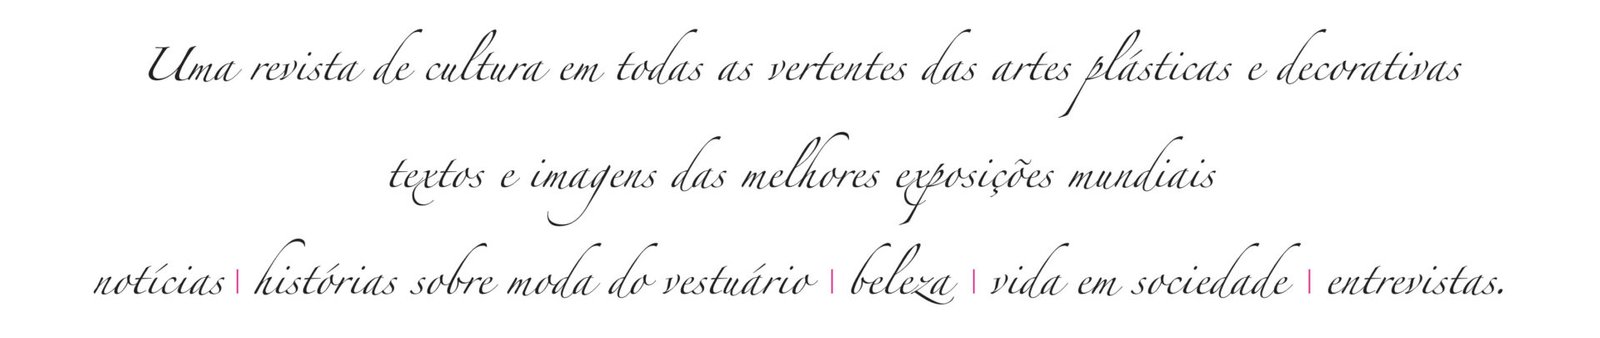 Uma revista de cultura em todas as vertentes das artes plásticas e decorativas
textos e imagens das melhores exposições mundiais
notícias | histórias sobre moda do vestuário | beleza | vida em sociedade | entrevistas.